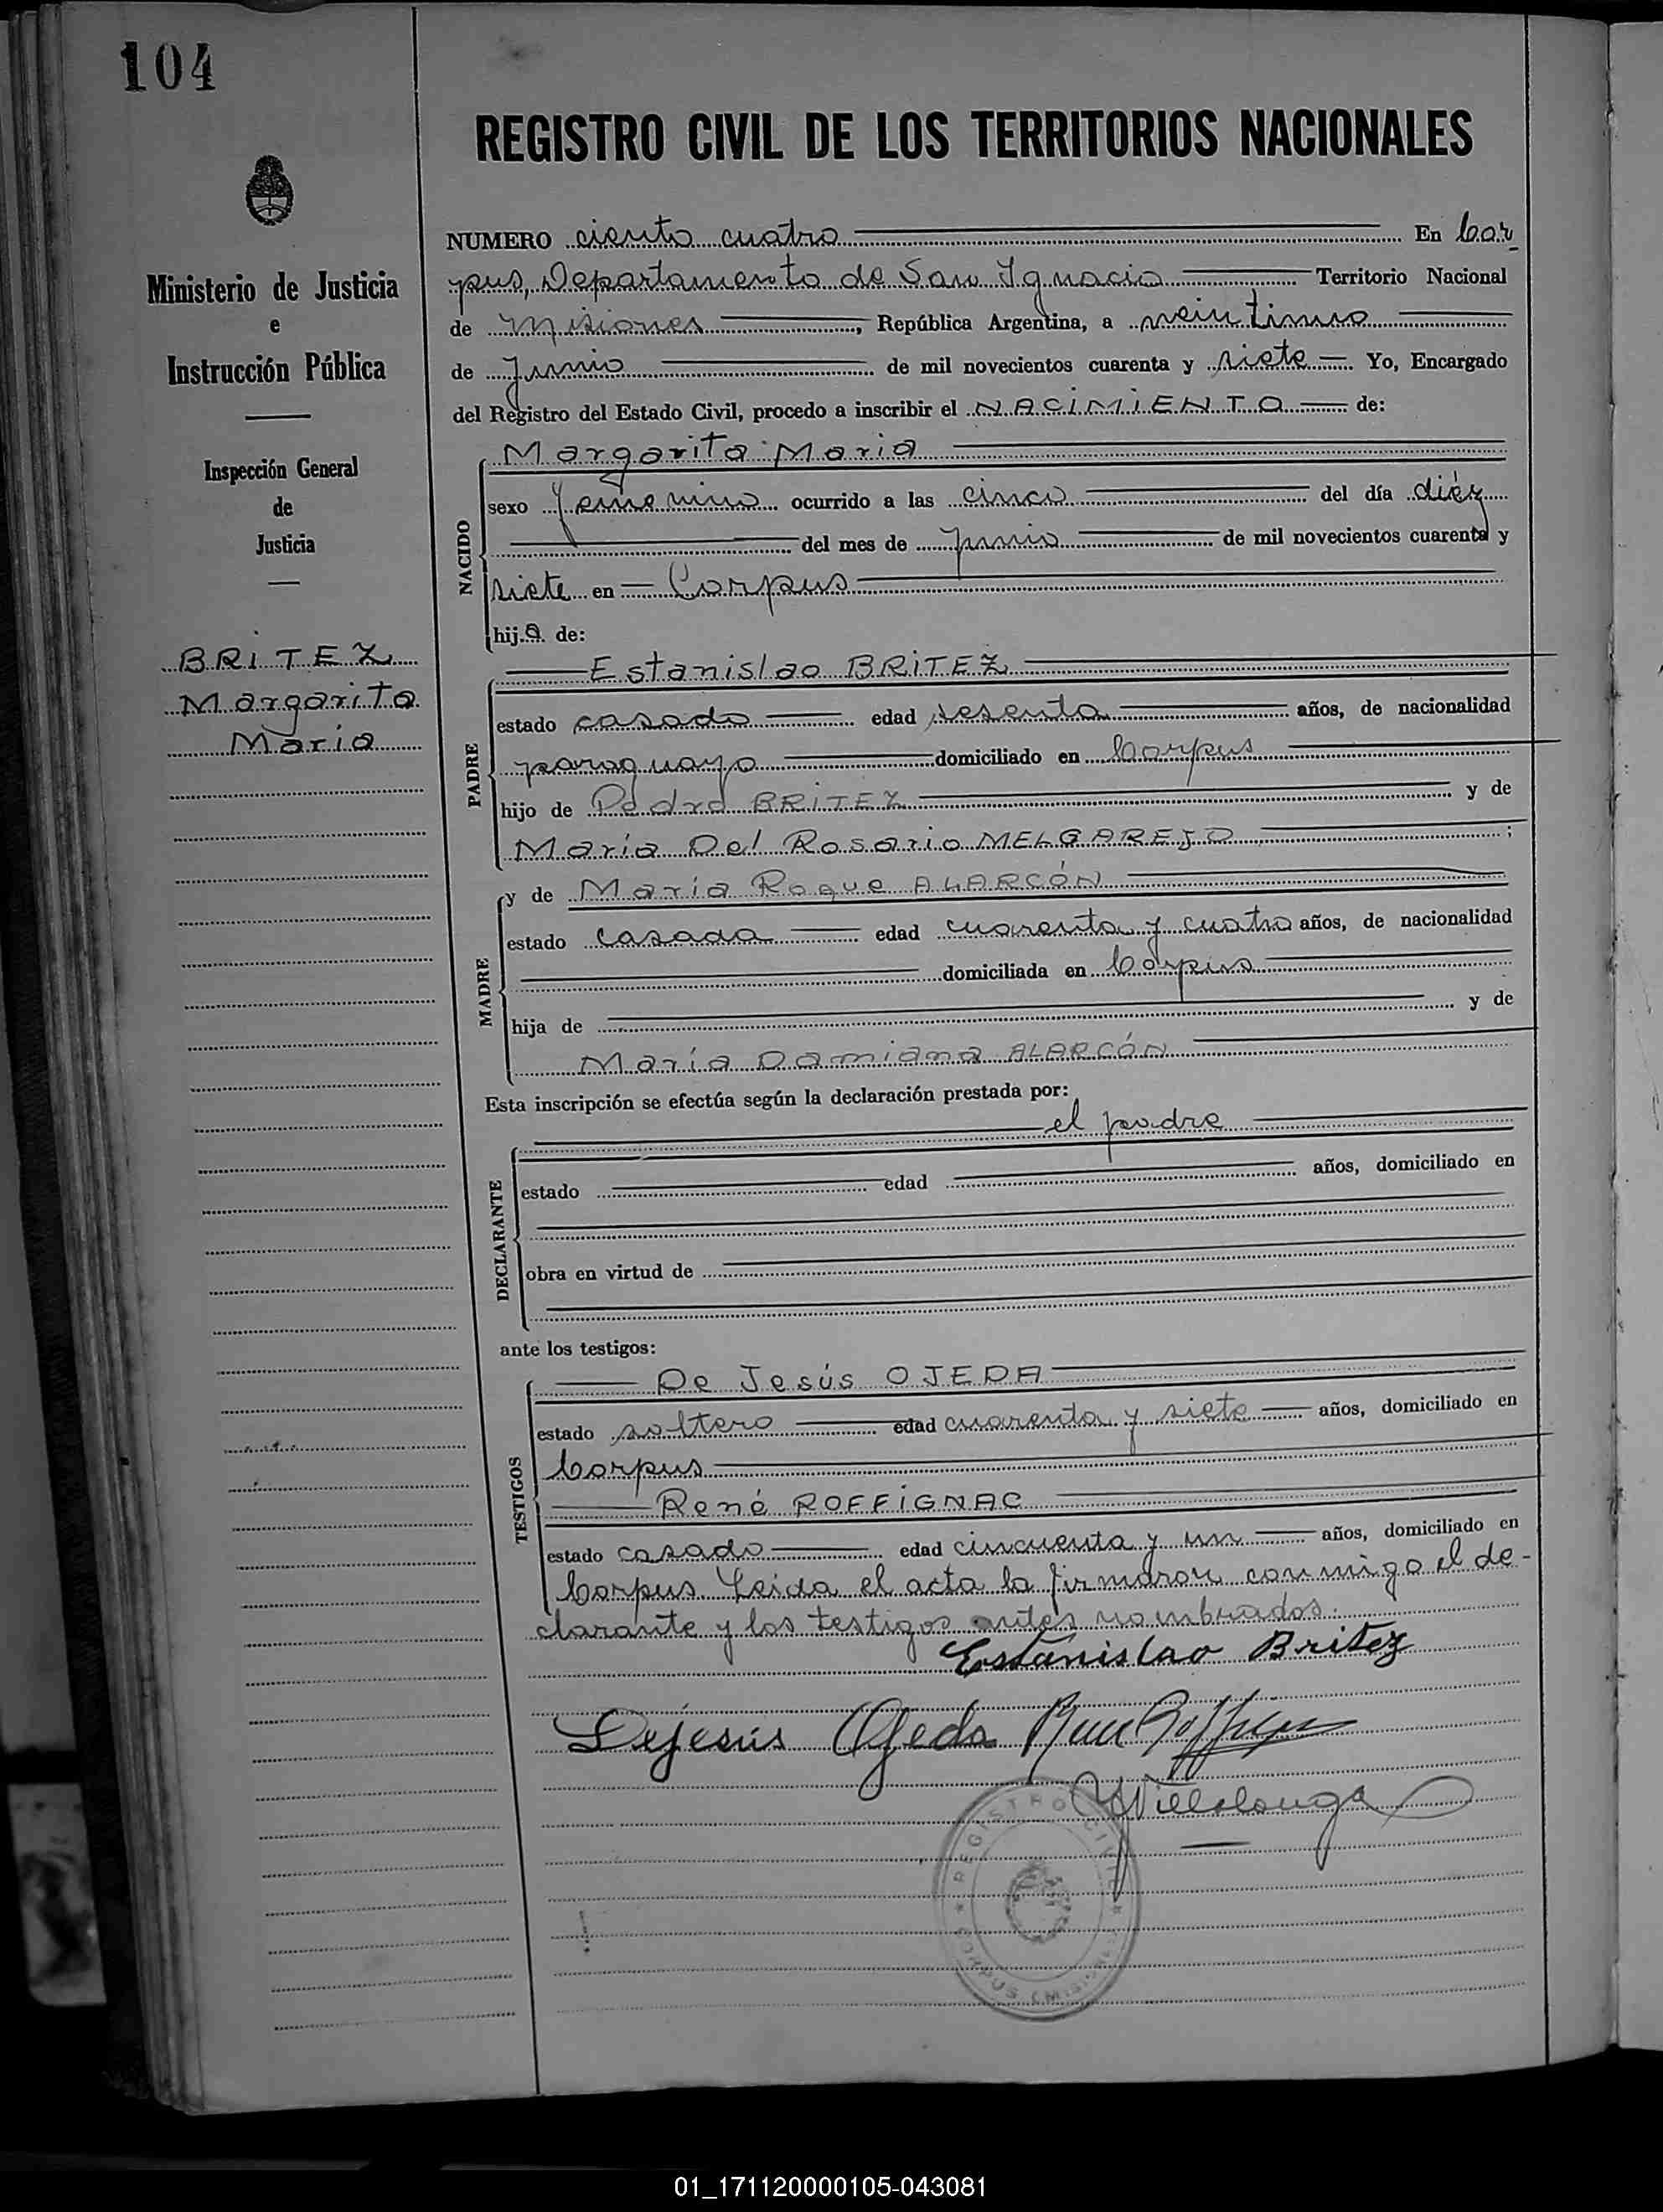 104
REGISTRO CIVIL DE LOS TERRITORIOS NACIONALES
Ministerio de Justicia
e
Instrucción Pública
Inspección General
de
Justicia
BRITEZ
Margarita
Maria
NUMERO ciento cuatro En Cor
pus, Departamento de San Ignacio Territorio Nacional
de Misiones, República Argentina, a veintiuno
de Junio de mil novecientos cuarenta y siete Yo, Encargado
del Registro del Estado Civil, procedo a inscribir el NACIMIENTO de:
NACIDO
Margarita Maria
sexo femenino ocurrido a las cinco del día diéz
del mes de junio de mil novecientos cuarenta y
siete en Corpus
hija de:
PADRE
Estanislao BRITEZ
estado casado edad sesenta años, de nacionalidad
paraguayo domiciliado en Corpus
hijo de Pedro BRITEZ y de
María Del Rosario MELGAREJO ;
MADRE
y de María Roque ALARCÓN
estado casada edad cuarenta y cuatro años, de nacionalidad
domiciliada en Corpus
hija de y de
María Damiana ALARCÓN
Esta inscripción se efectúa según la declaración prestada por:
el padre
DECLARANTE
estado edad años, domiciliado en
obra en virtud de
ante los testigos:
TESTIGOS
De Jesús OJEDA
estado soltero edad cuarenta y siete años, domiciliado en
Corpus
René ROFFIGNAC
estado casado edad cincuenta y un años, domiciliado en
Corpus. Leida el acta la firmaron conmigo el de-
clarante y los testigos antes nombrados.
Estanislao Britez
Dejesús Ojeda
Villalonga
REGISTRO CIVIL CORPUS (MISIONES)
01_171120000105-043081